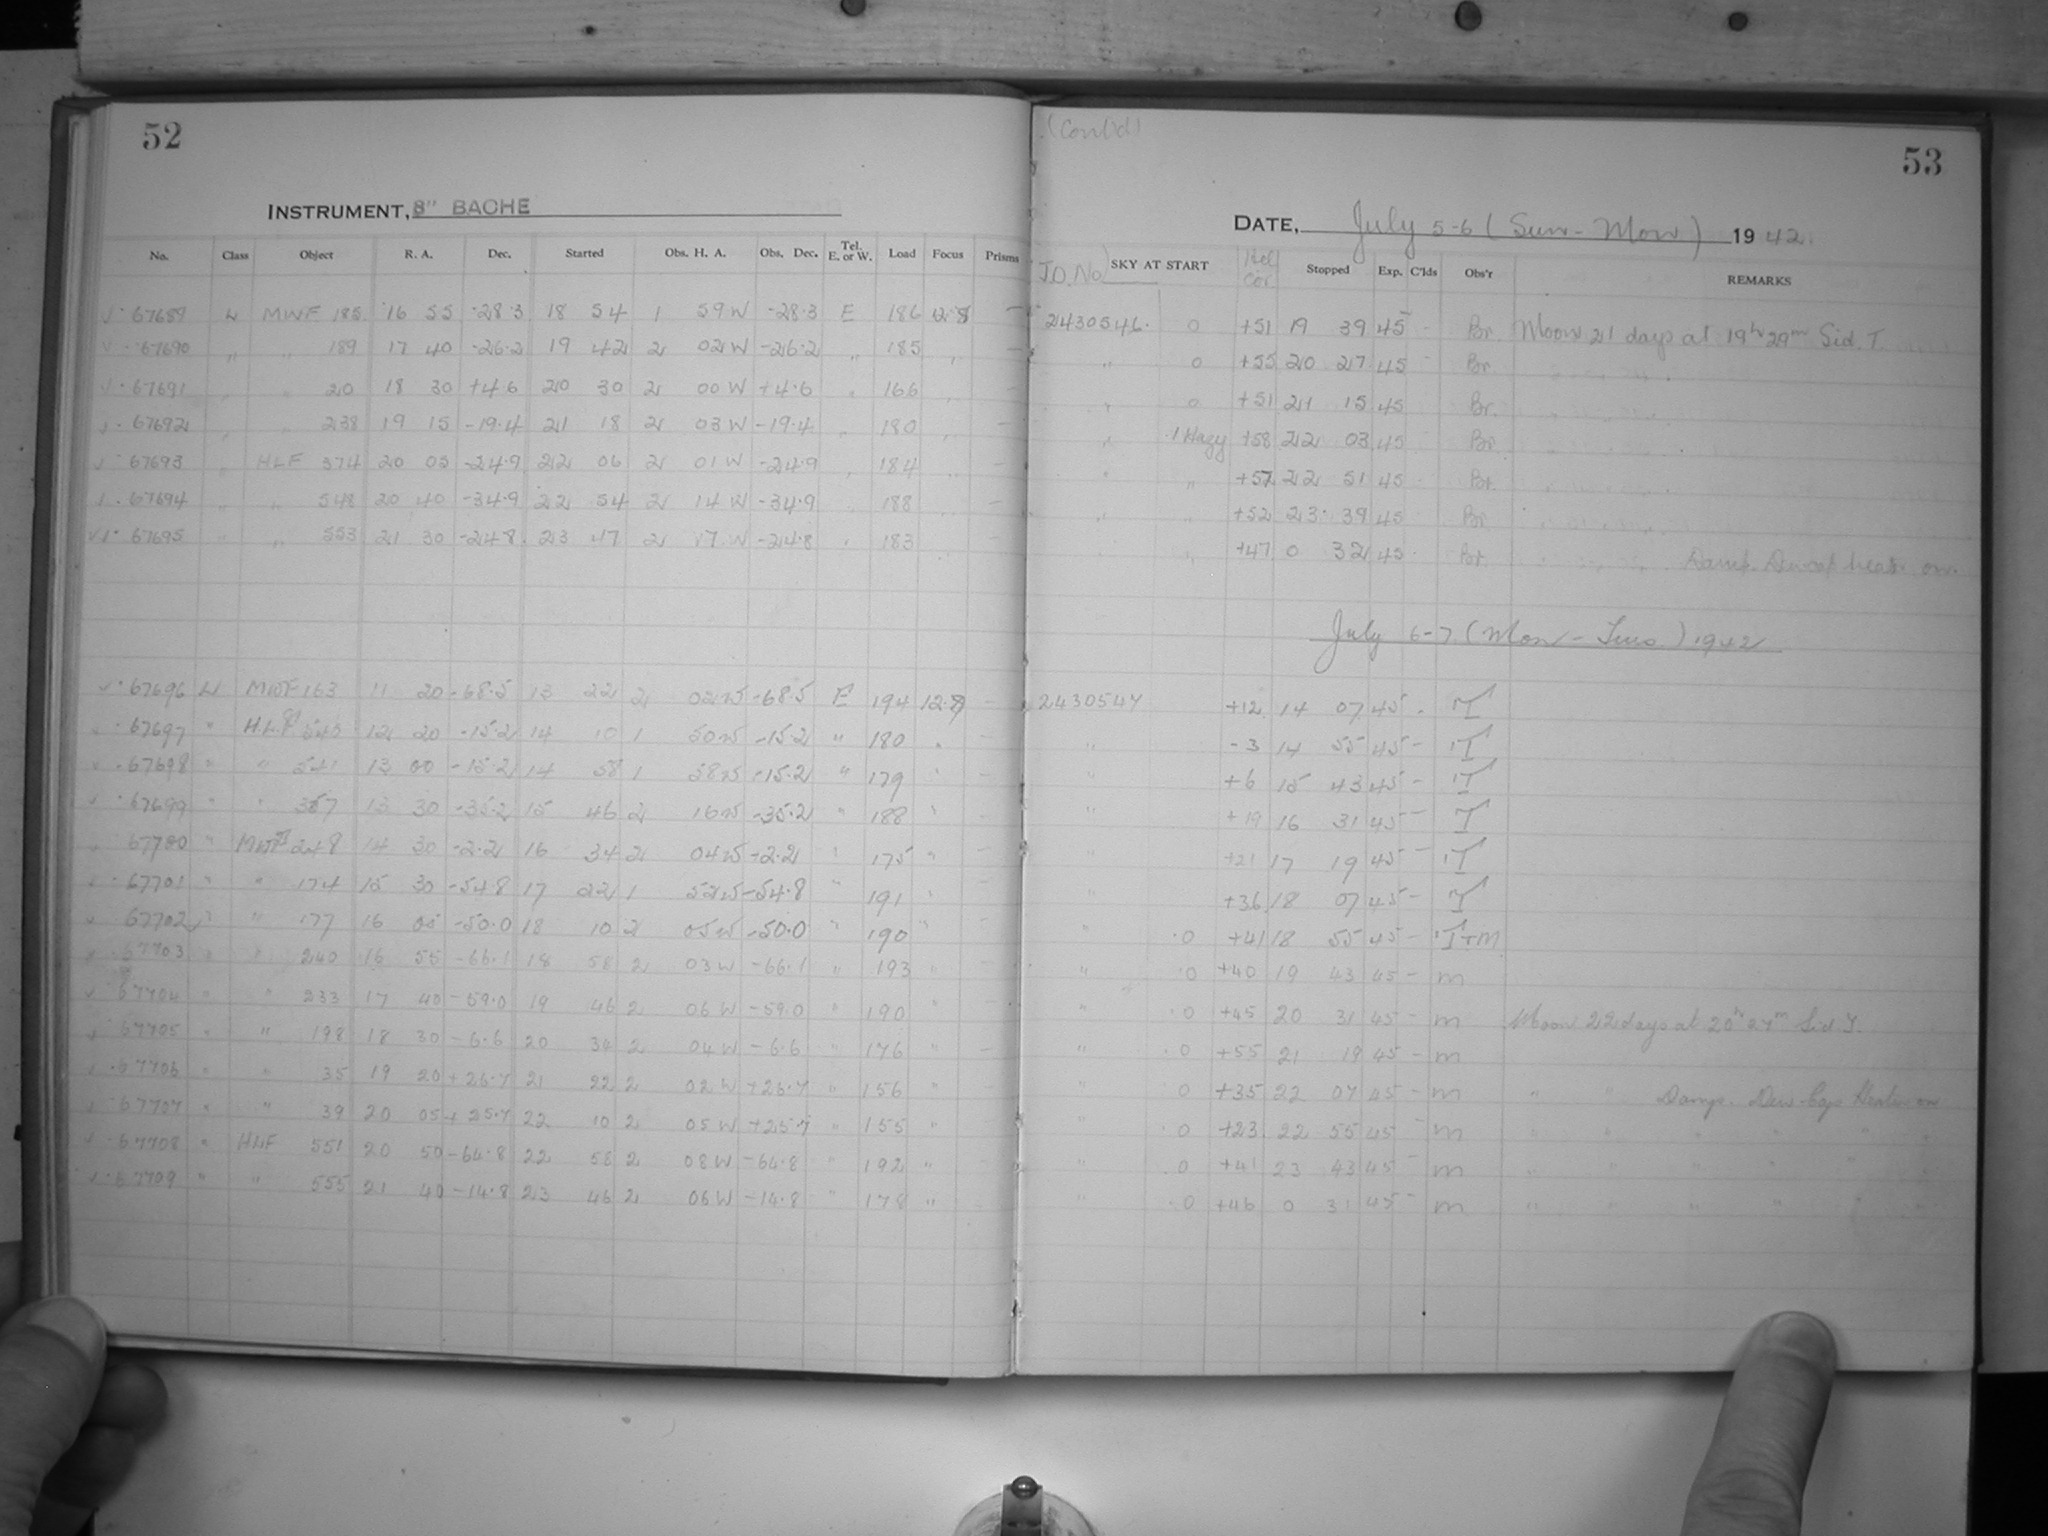 52
INSTRUMENT, 8" BACHE
No. Class Object R. A. Dec. Started Obs. H. A. Obs. Dec. Tel. E. or W. Load Focus Prisms
67689 L MWF 185 16 55 -28.3 18 54 1 59 W -28.3 E 186 12.8 —
67690 " " 189 17 40 -26.2 19 42 2 02 W -26.2 " 185 " —
67691 " " 20 18 30 +4.6 20 30 2 00 W +4.6 " 166 " —
67692 " " 238 19 15 -19.4 21 18 2 03 W -19.4 " 180 " —
67693 " HLF 374 20 05 -24.9 22 06 2 01 W -24.9 " 184 —
67694 " " 548 20 40 -34.9 22 54 2 14 W -34.9 " 188 —
67695 " " 553 21 30 -24.8 23 47 2 17 W -24.8 " 183 —
67696 L MWF 163 11 20 -68.5 13 22 2 02 W -68.5 E 194 12.8 —
67697 " H.L.F 12 20 -15.2 14 10 1 50 W -15.2 " 180 " —
67698 " " 541 13 00 -15.2 14 58 1 58 W -15.2 " 179 " —
67699 " " 357 13 30 -35.2 15 46 2 16 W -35.2 " 188 " —
67700 " MWF 248 14 30 -2.2 16 34 2 04 W -2.2 " 175 " —
67701 " " 174 15 30 -54.8 17 22 1 52 W -54.8 " 191 " —
67702 " " 177 16 05 -50.0 18 10 2 05 W -50.0 " 190 " —
67703 " " 240 16 55 -66.1 18 58 2 03 W -66.1 " 193 " —
67704 " " 233 17 40 -59.0 19 46 2 06 W -59.0 " 190 " —
67705 " " 198 18 30 -6.6 20 34 2 04 W -6.6 " 176 " —
67706 " " 35 19 20 +26.7 21 22 2 02 W +26.7 " 156 " —
67707 " " 39 20 05 +25.7 22 10 2 05 W +25.7 " 155 " —
67708 " HLF 551 20 50 -64.8 22 58 2 08 W -64.8 " 192 "
67709 " " 555 21 40 -14.8 23 46 2 06 W -14.8 " 178 "
(Cont'd)
53
DATE, July 5-6 (Sun - Mon) 1942
J.D. No. SKY AT START Hel Cor. Stopped Exp. C'lds Obs'r REMARKS
2430546. 0 +51 19 39 45 - Br. Moon 21 days at 19h 29m Sid. T.
" 0 +55 20 27 45 - Br. " " " "
" 0 +51 21 15 45 Br. " " " "
" .1 Hazy +58 22 03 45 Br. " " " "
" " +57 22 51 45 Br. " " " "
" " +52 23 39 45 Br. " " " "
" +47 0 32 45 Br. " " " " Damp. Dewcap heater on.
July 6-7 (Mon - Tues.) 1942
2430547 +12 14 07 45 - T
" -3 14 55 45 - T
" +6 15 43 45 - T
" +19 16 31 45 - T
" +21 17 19 45 - T
" +36 18 07 45 - T
" .0 +41 18 55 45 - T+M
" .0 +40 19 43 45 - m
" .0 +45 20 31 45 - m Moon 22 days at 20h 27m Sid T.
" .0 +55 21 19 45 - m
" 0 +35 22 07 45 - m " " Damp. Dew-Cap Heater on
" .0 +23 22 55 45 - m " " " " "
" .0 +41 23 43 45 - m " " " " "
" .0 +46 0 31 45 - m " " " " "